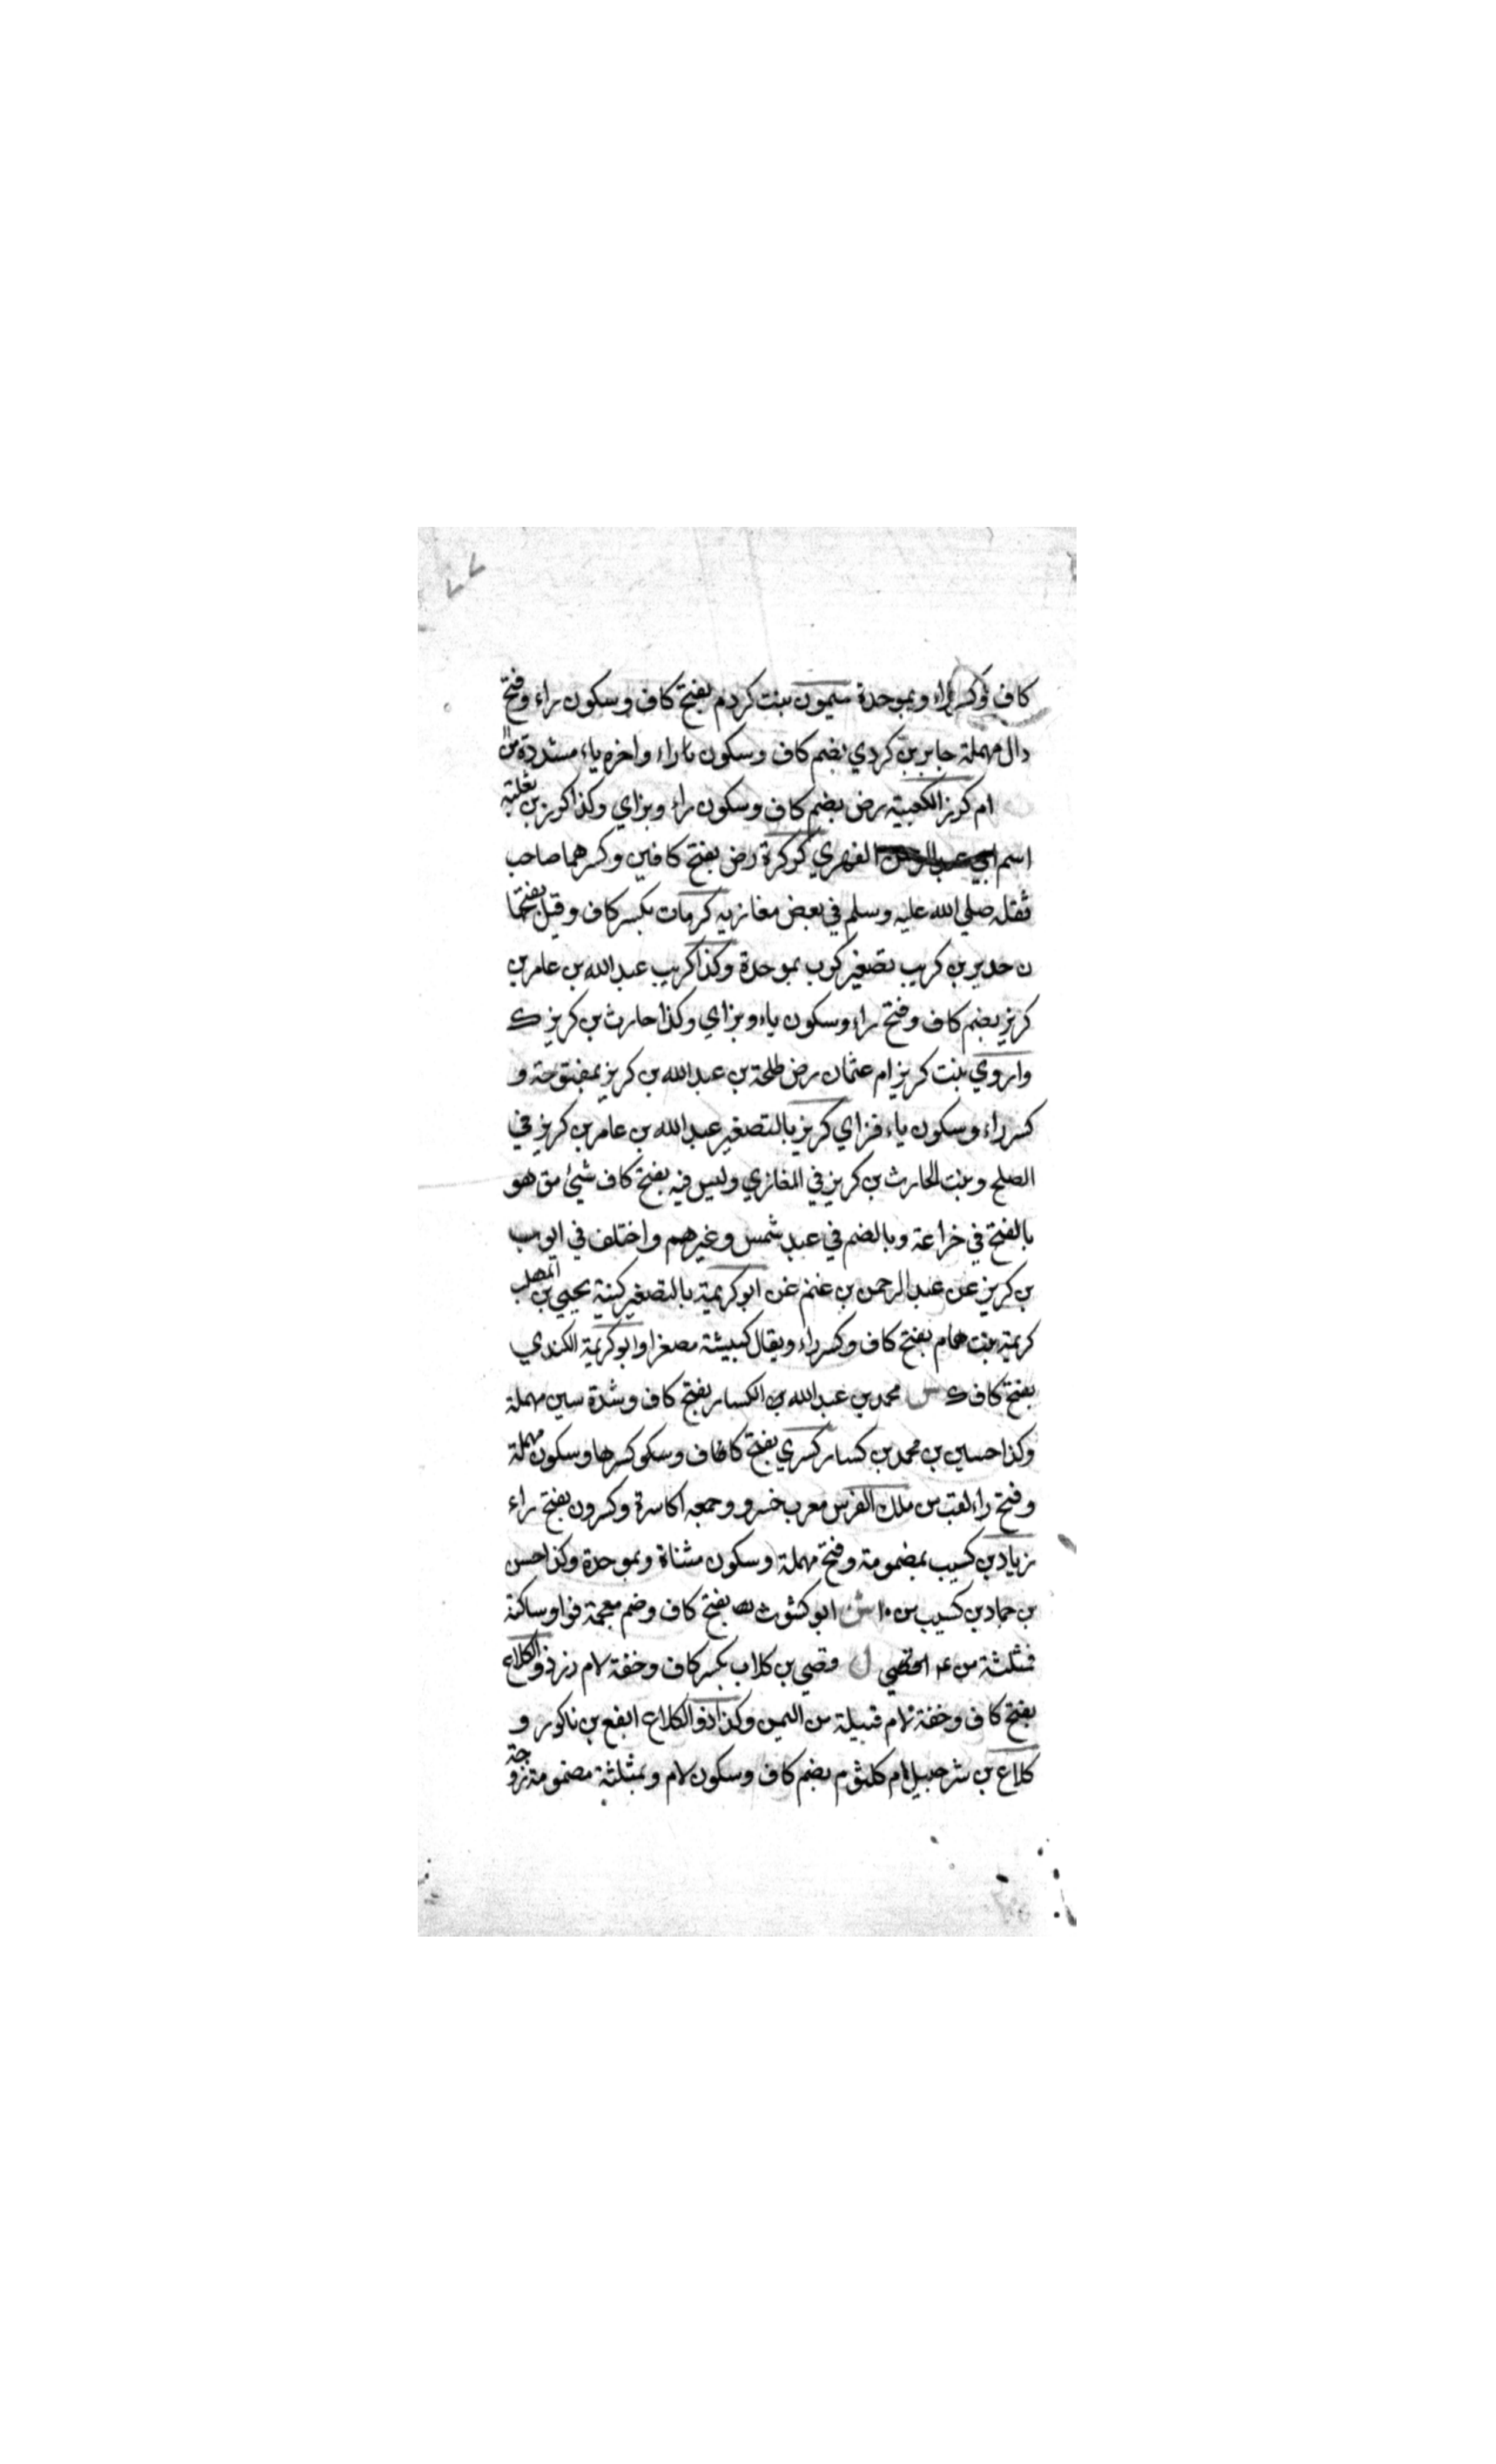 ٧٧
كاف وكسر راء وبموحدة ميمون بنت كردم بفتح كاف وسكون راء وفتح
دال مهملة جابر بن كردي بضم كاف وسكون راء واخره ياء مشددة من
ام كرز الكعبية رض بضم كاف وسكون راء وبزاي وكذا كرز بن ثعلبة
اسم ابي عبد الرحمن الفهري كركرة رض بفتح كافين وكسرهما صاحب
ثقله صلي الله عليه وسلم في بعض مغازيه كرمات بكسر كاف وقيل بفتحها
ن حدير بن كريب تصغير كرب بموحدة وكذا كريب عبد الله بن عامر بن
كريز بضم كاف وفتح راء وسكون ياء وبزاي وكذا حارث بن كريز ك
واروي بنت كريز ام عثمان رض طلحة بن عبد الله بن كريز بمفتوحة و
كسر راء وسكون ياء فزاي كريز بالتصغير عبد الله بن عامر بن كريز في
الصلح وبنت الحارث بن كريز في المغازي وليس فيه بفتح كاف شيئ مق هو
بالفتح في خزاعة وبالضم في عبد شمس وغيرهم واختلف في ايوب
بن كريز عن عبد الرحمن بن غنم غن ابو كريمة بالتصغير كنية يحيي بن المهلب
كريمة بنت همام بفتح كاف وكسر راء ويقال كبيشة مصغرا وابو كريمة الكندي
بفتح كاف ك س محمد بن عبد الله بن الكسار بفتح كاف وشدة سين مهملة
وكذا حسين بن محمد بن كسار كسري بفتح كاف وكسرها وسكون مهملة
وفتح راء لقب من ملك الفرس معرب خسرو وجمعه اكاسرة وكسرون بفتح راء
زياد بن كسيب بمضمومة وفتح مهملة وسكون مثناة وبموحدة وكذا حسن
بن حماد بن كسيب من ١٠ ش ابو كشوث بفتح كاف وضم معجمة فواو ساكنة
فمثلثة من قصي ل وقصي بن كلاب بكسر كاف وخفة لام ذو الكلاع
بفتح كاف وخفة لام قبيلة من اليمن وكذا ذو الكلاع ايفع بن ناكور و
كلاع بن شرحبيل ام كلثوم بضم كاف وسكون لام وبمثلثة مضمومة زوجة